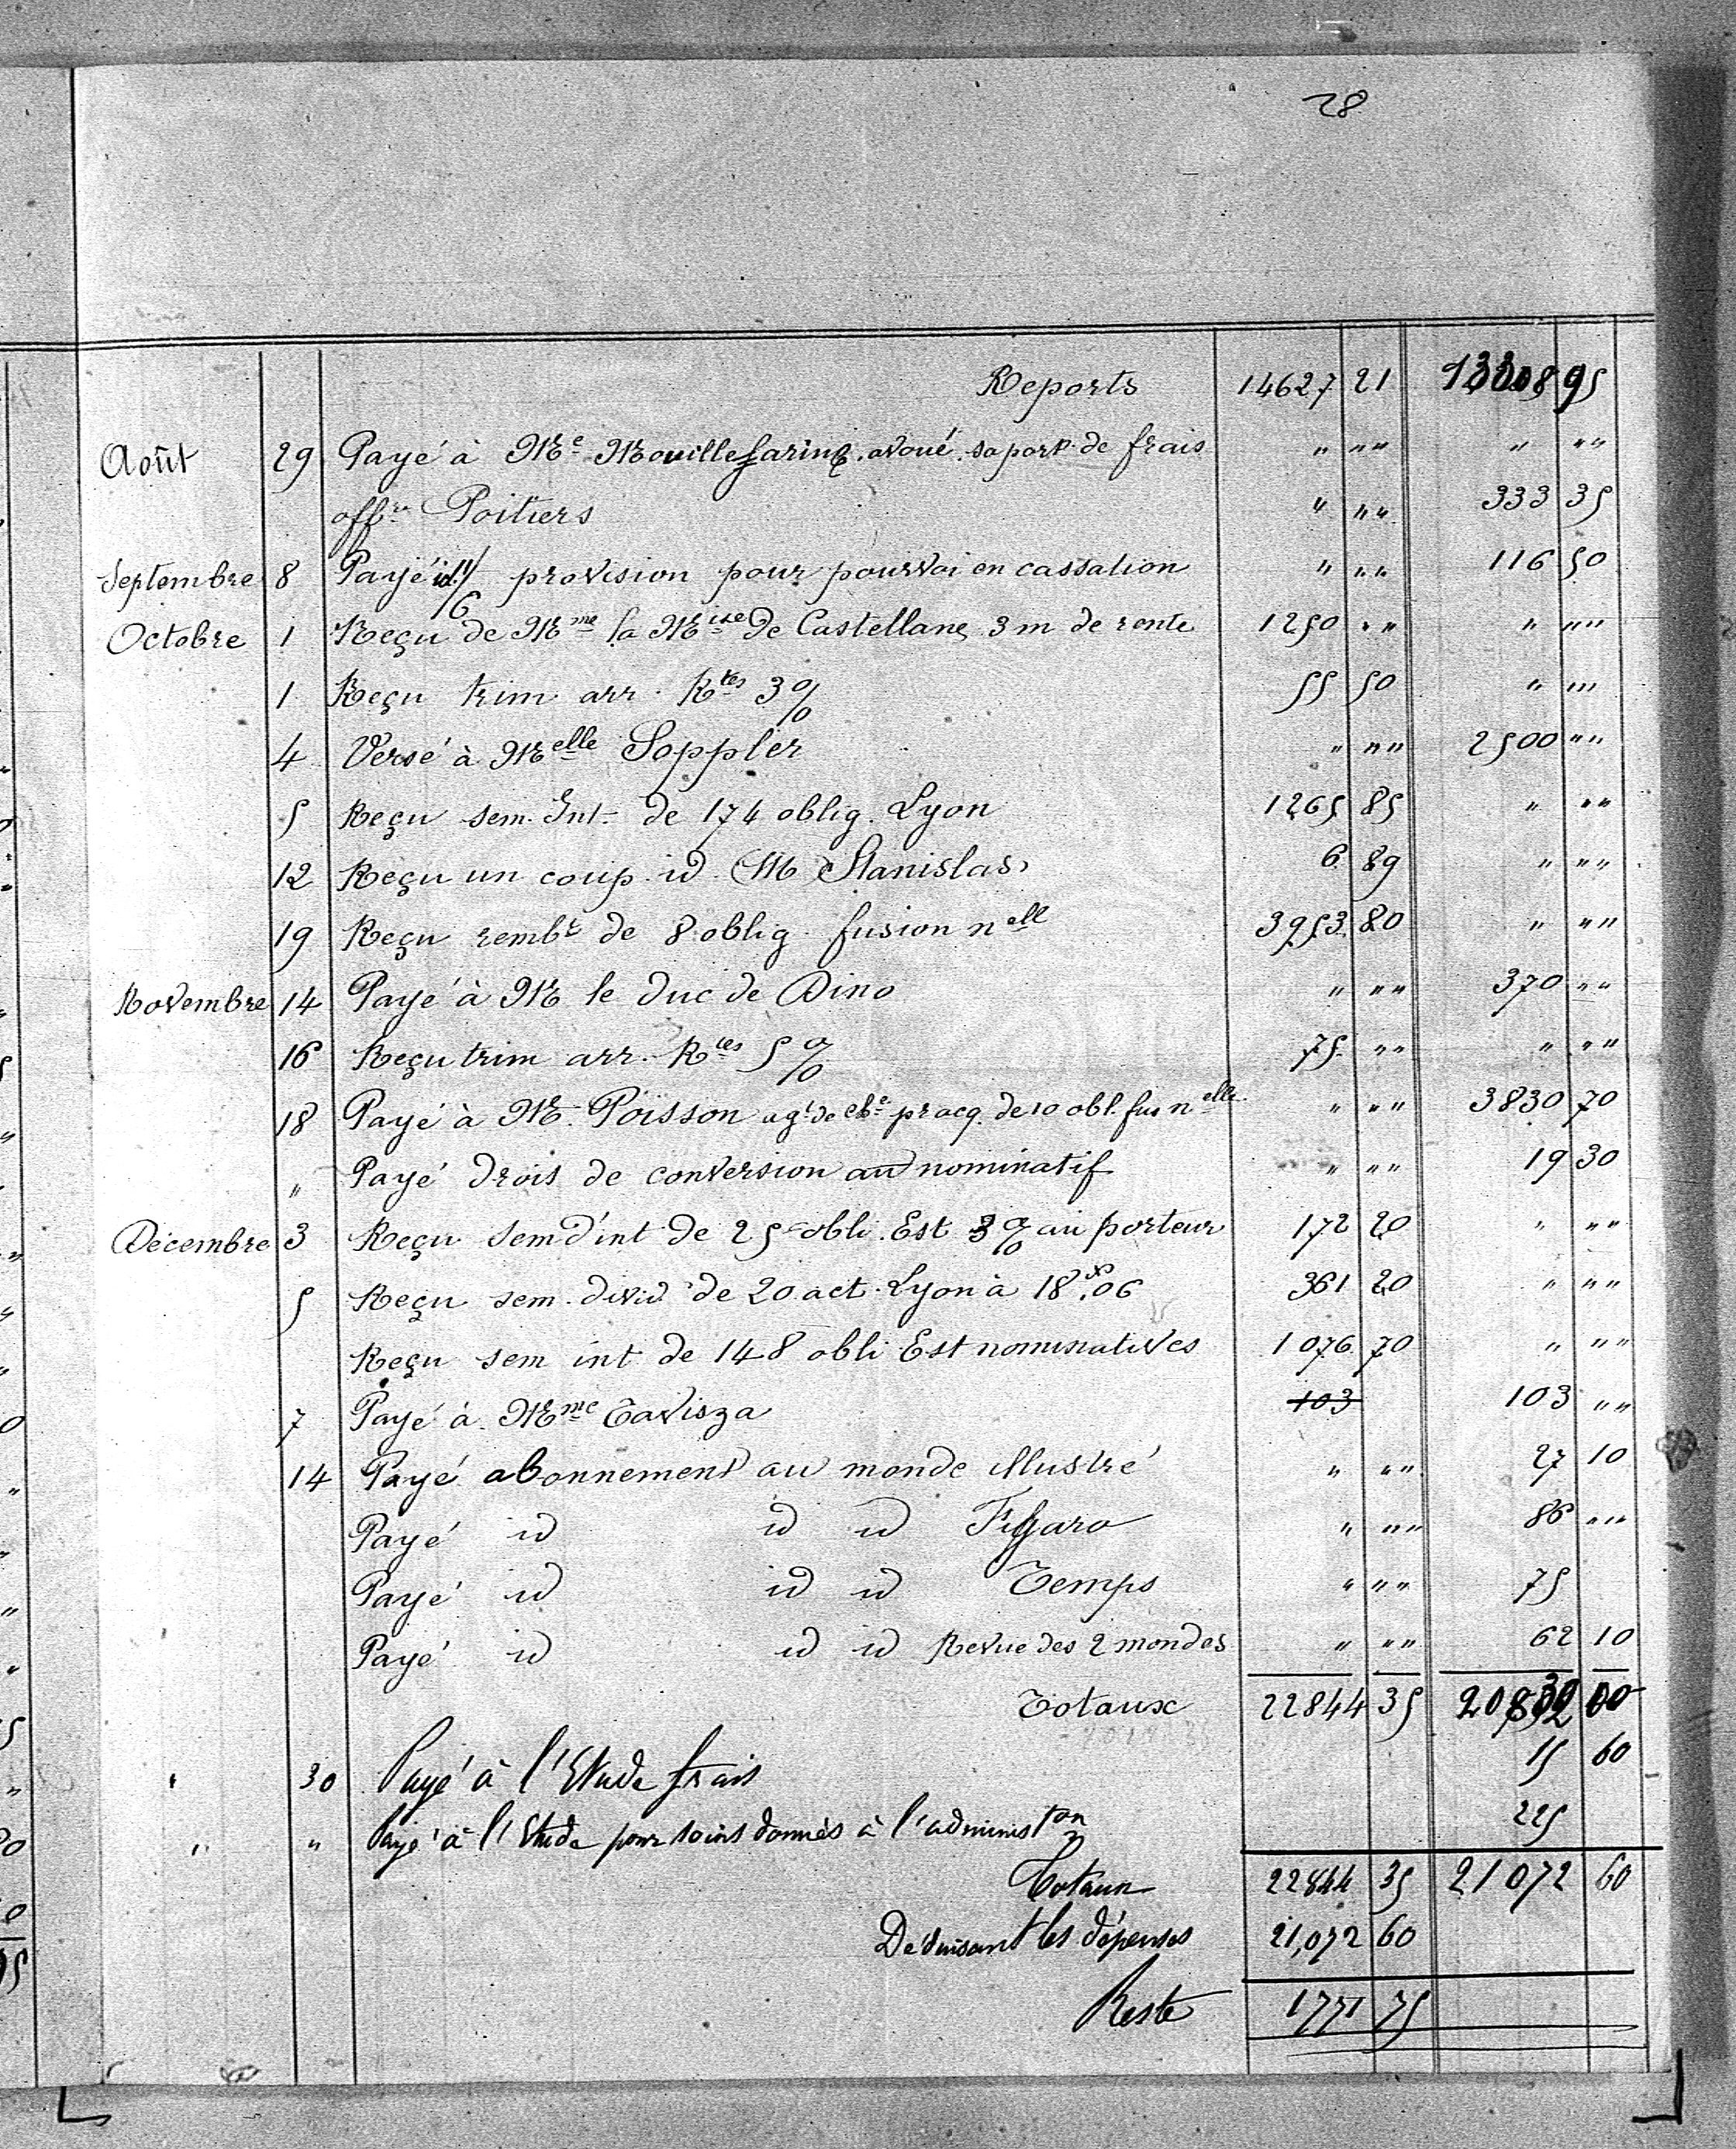 28
Reports 14627 21 13308 95
Août 29 Payé à Me Mouillefarine, avoué, sa part de frais " "" " ""
offres Poitiers " "" 333 35
Septembre 8 Payé id 1/6 provision pour pourvoi en cassation " "" 116 50
Octobre 1 Reçu de Mme la Mise de Castellane 3 m de rente 1250 "" " ""
1 Reçu trim arr. Rtes 3 % 55 50 " ""
4 Versé à Melle Soppler " "" 2500 ""
5 Reçu sem. Int. de 174 oblig. Lyon 1265 85 " ""
12 Reçu un coup. id. (M Stanislas) 6 89 " ""
19 Reçu rembt de 8 oblig. fusion nelle 3953 80 " ""
Novembre 14 Payé à M le duc de Dino " "" 370 ""
16 Reçu trim arr. Rtes 5 % 75 "" " ""
18 Payé à M. Poisson agt de che pr acq. de 10 obl. fus nelle " "" 3830 70
" Payé drois de conversion au nominatif " "" 19 30
Décembre 3 Reçu sem d'int de 25 obli. Est 3 % au porteur 172 20 " ""
5 Reçu sem. divid de 20 act. Lyon à 18.06 361 20 " ""
Reçu sem int de 148 obli Est nominatives 1076 70 " ""
7 Payé à Mme Tavisza 103 103 ""
14 Payé abonnement au monde illustré " "" 27 10
Payé id id id Figaro " "" 86 ""
Payé id id id Temps " "" 75
Payé id id id Revue des 2 mondes " "" 62 10
Totaux 22844 35 20832 00
" 30 Payé à l'Etude frais 15 60
" " Payé à l'Etude pour soins donnés à l'administon 225
Totaux 22844 35 21072 60
Déduisant les dépenses 21,072 60
Reste 1771 75